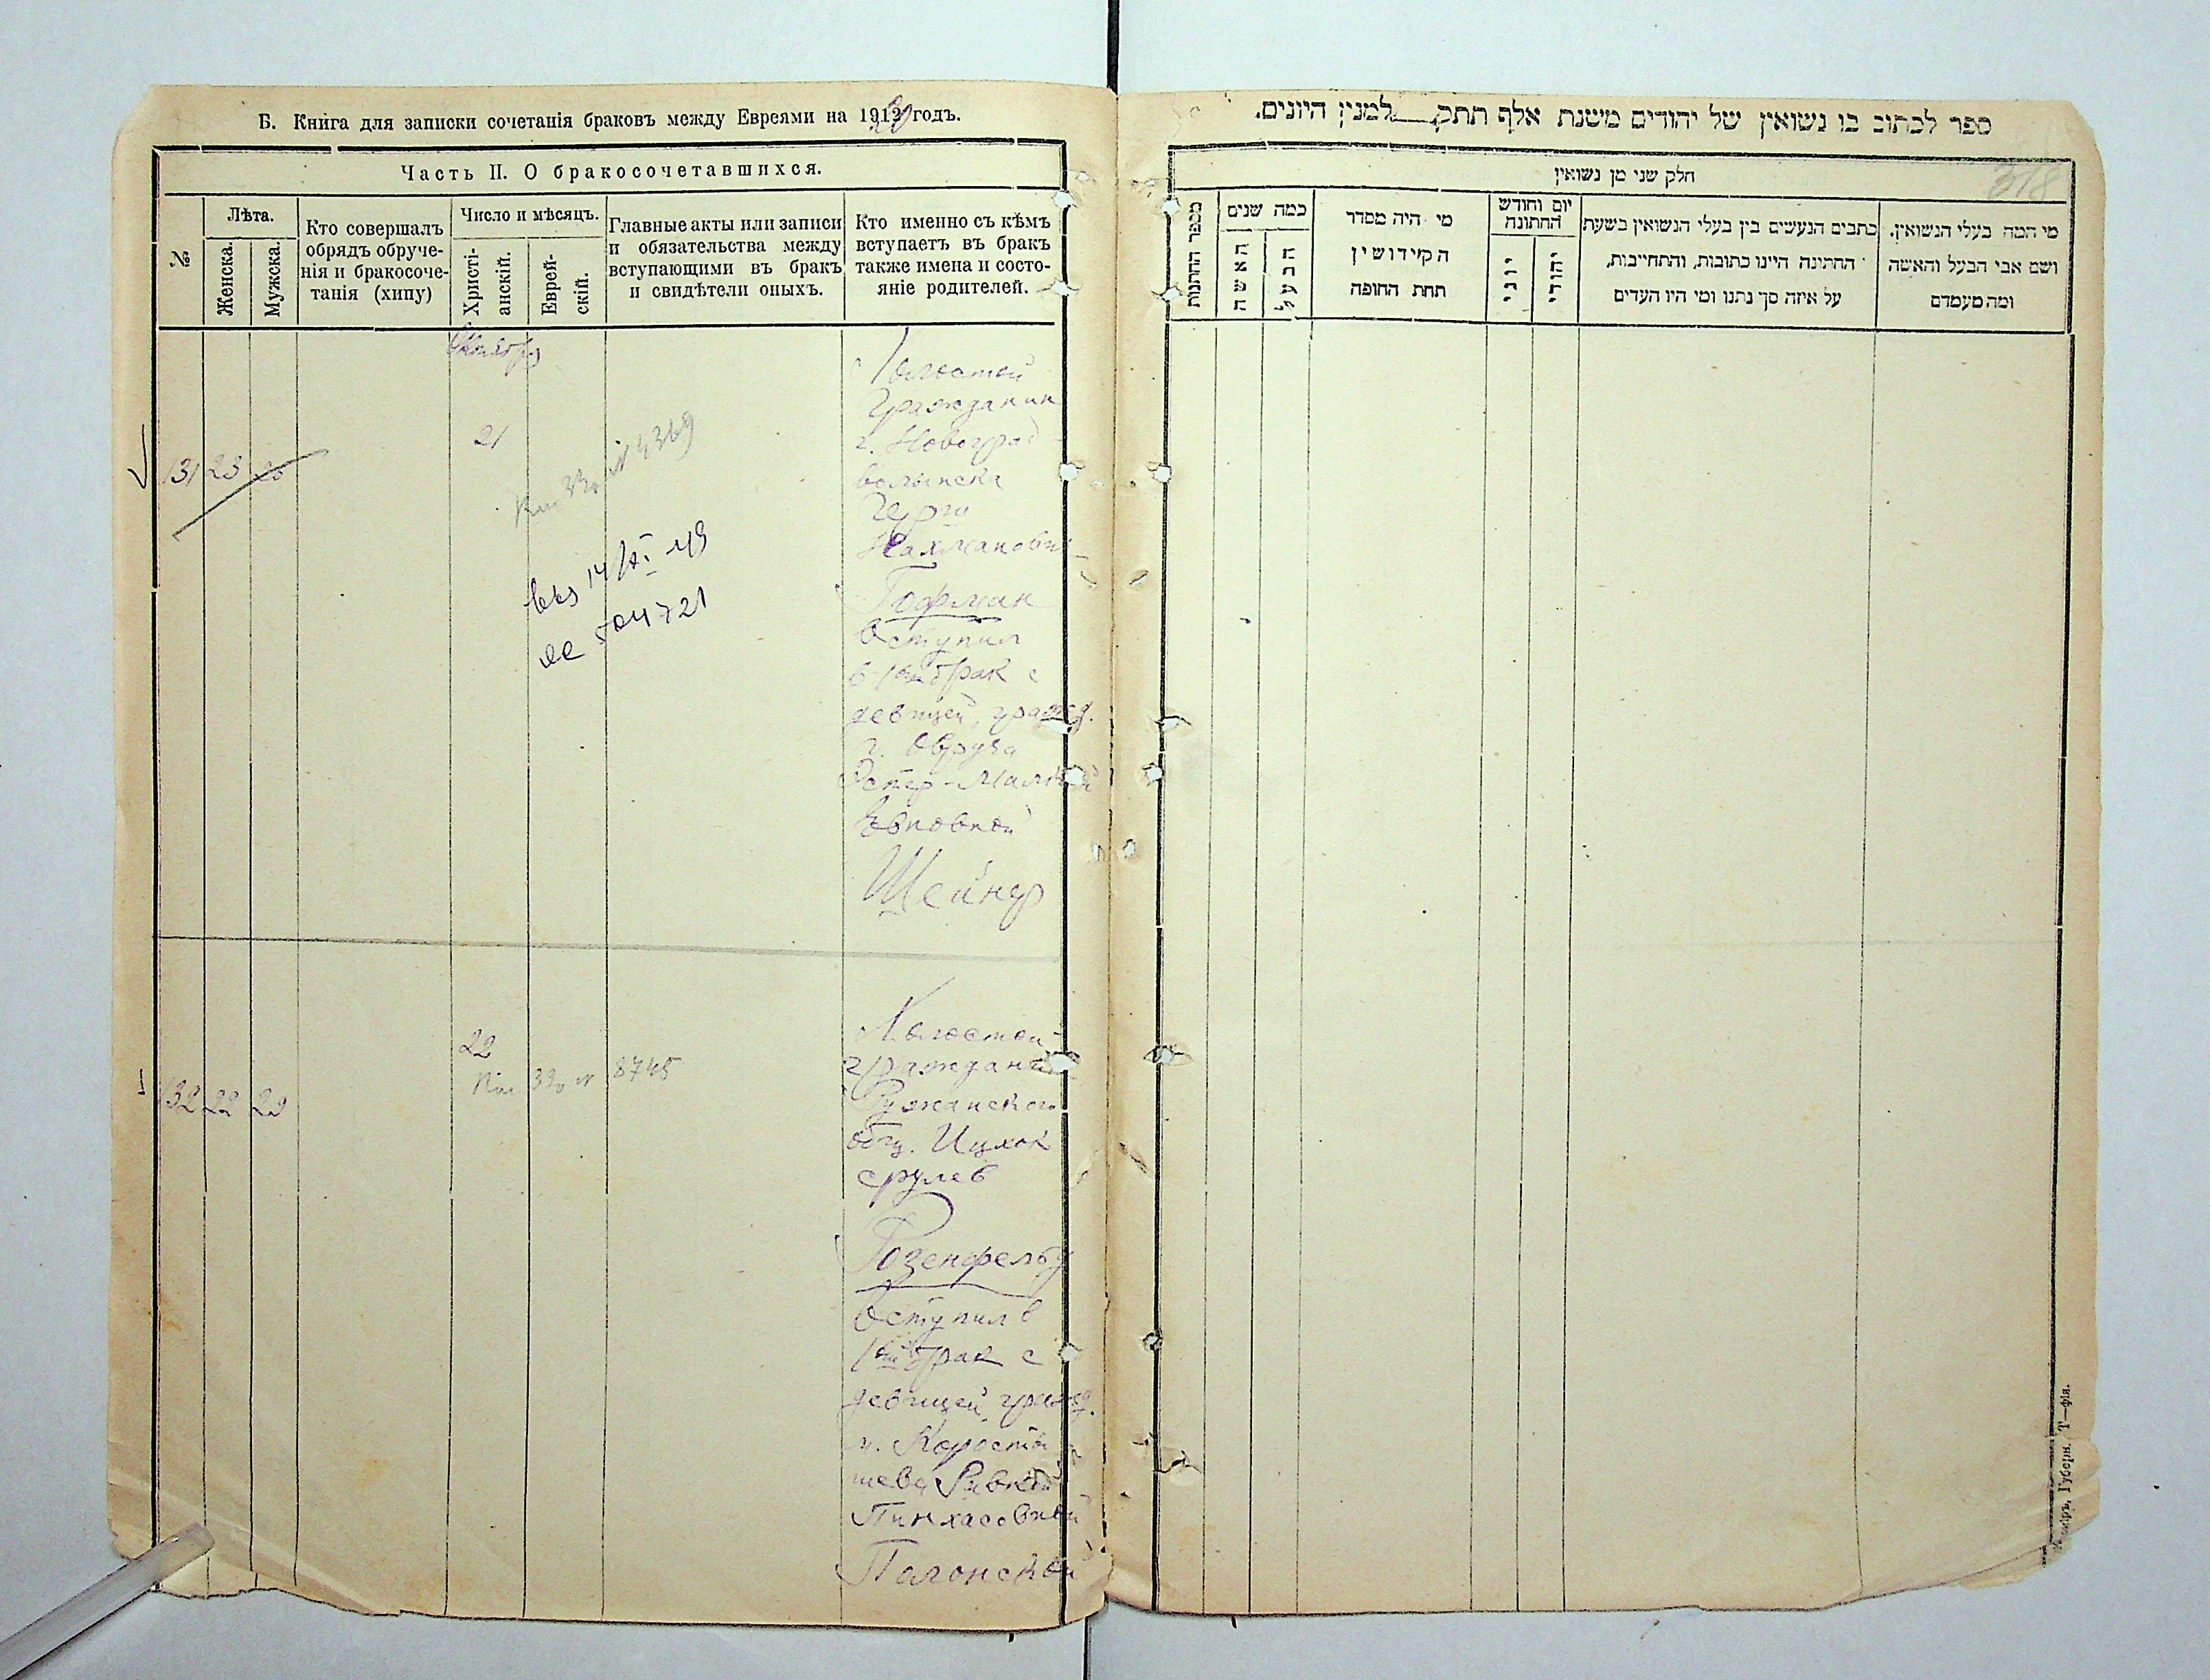 Б. Книга для записки сочетанія браковъ между Евреями на 1920 годъ.
Часть II. О бракосочетавшихся.
№
Лѣта.
Женска.
Мужска.
Кто совершалъ
обрядъ обруче-
нія и бракосоче-
танія (хипу)
Число и мѣсяцъ.
Христі-
анскій.
Еврей-
скій.
Главные акты или записи
и обязательства между
вступающими въ бракъ
и свидѣтели оныхъ.
Кто именно съ кѣмъ
вступаетъ въ бракъ
также имена и состо-
яніе родителей.
Октябрь
131 23
21
14/XI 49
504721
Холостой
Гражданин
г. Новоград
волынска
Герш
Нахманович
Гофман
Вступил
в 1ый брак с
девицей, гражд.
г. Овруча
Эстер-Малкой
Шейнер
132 22 23
22
8745
Холостой
гражданин
Ружанского
общ. Ицхок
срулев
Розенфельд
Вступил в
1ый брак с
девицей, гражд.
м. Коросты
шева Ривкой
Пинхасовной
Палонской
ספר לכתוב בו נשואין של יהודים משנת אלף תתק למנין היונים.
318
חלק שני מן נשואין
מספר החתנות
כמה שנים
האשה
הבעל
מי היה מסדר
הקידושין
תחת החופה
יום וחודש
החתונה
יוני
יהודי
כתבים הנעשים בין בעלי הנשואין בשעת
החתינה היינו כתובות, והתחייבות,
על איזה סך נתנו ומי היו העדים
מי המה בעלי הנשואין,
ושם אבי הבעל והאשה
ומה מעמדם
Губерн. Т—фія.